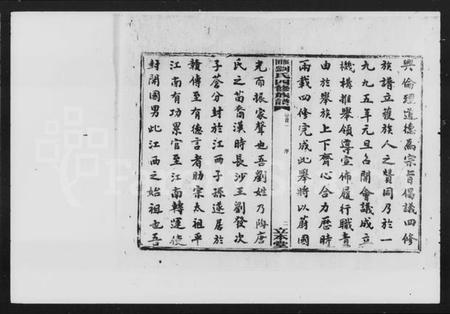 興倫理道德爲宗旨倡議四修
族譜立獲族人之贊同乃於一
九九五年元旦召開會議成立
機構推舉領導宣佈履行職責
由於舉族上下齊心合力歷時
兩載四修完成此舉將以蔚國
劉氏四修族譜
序
立本堂
光而振家聲也吾劉姓乃陶唐
氏之苗裔漢時長沙王劉發次
子蒼分封於江西子孫遂居於
贛傳至有德言者助宋太祖平
江南有功累官至江南轉運使
封開國男此江西之始祖也吾